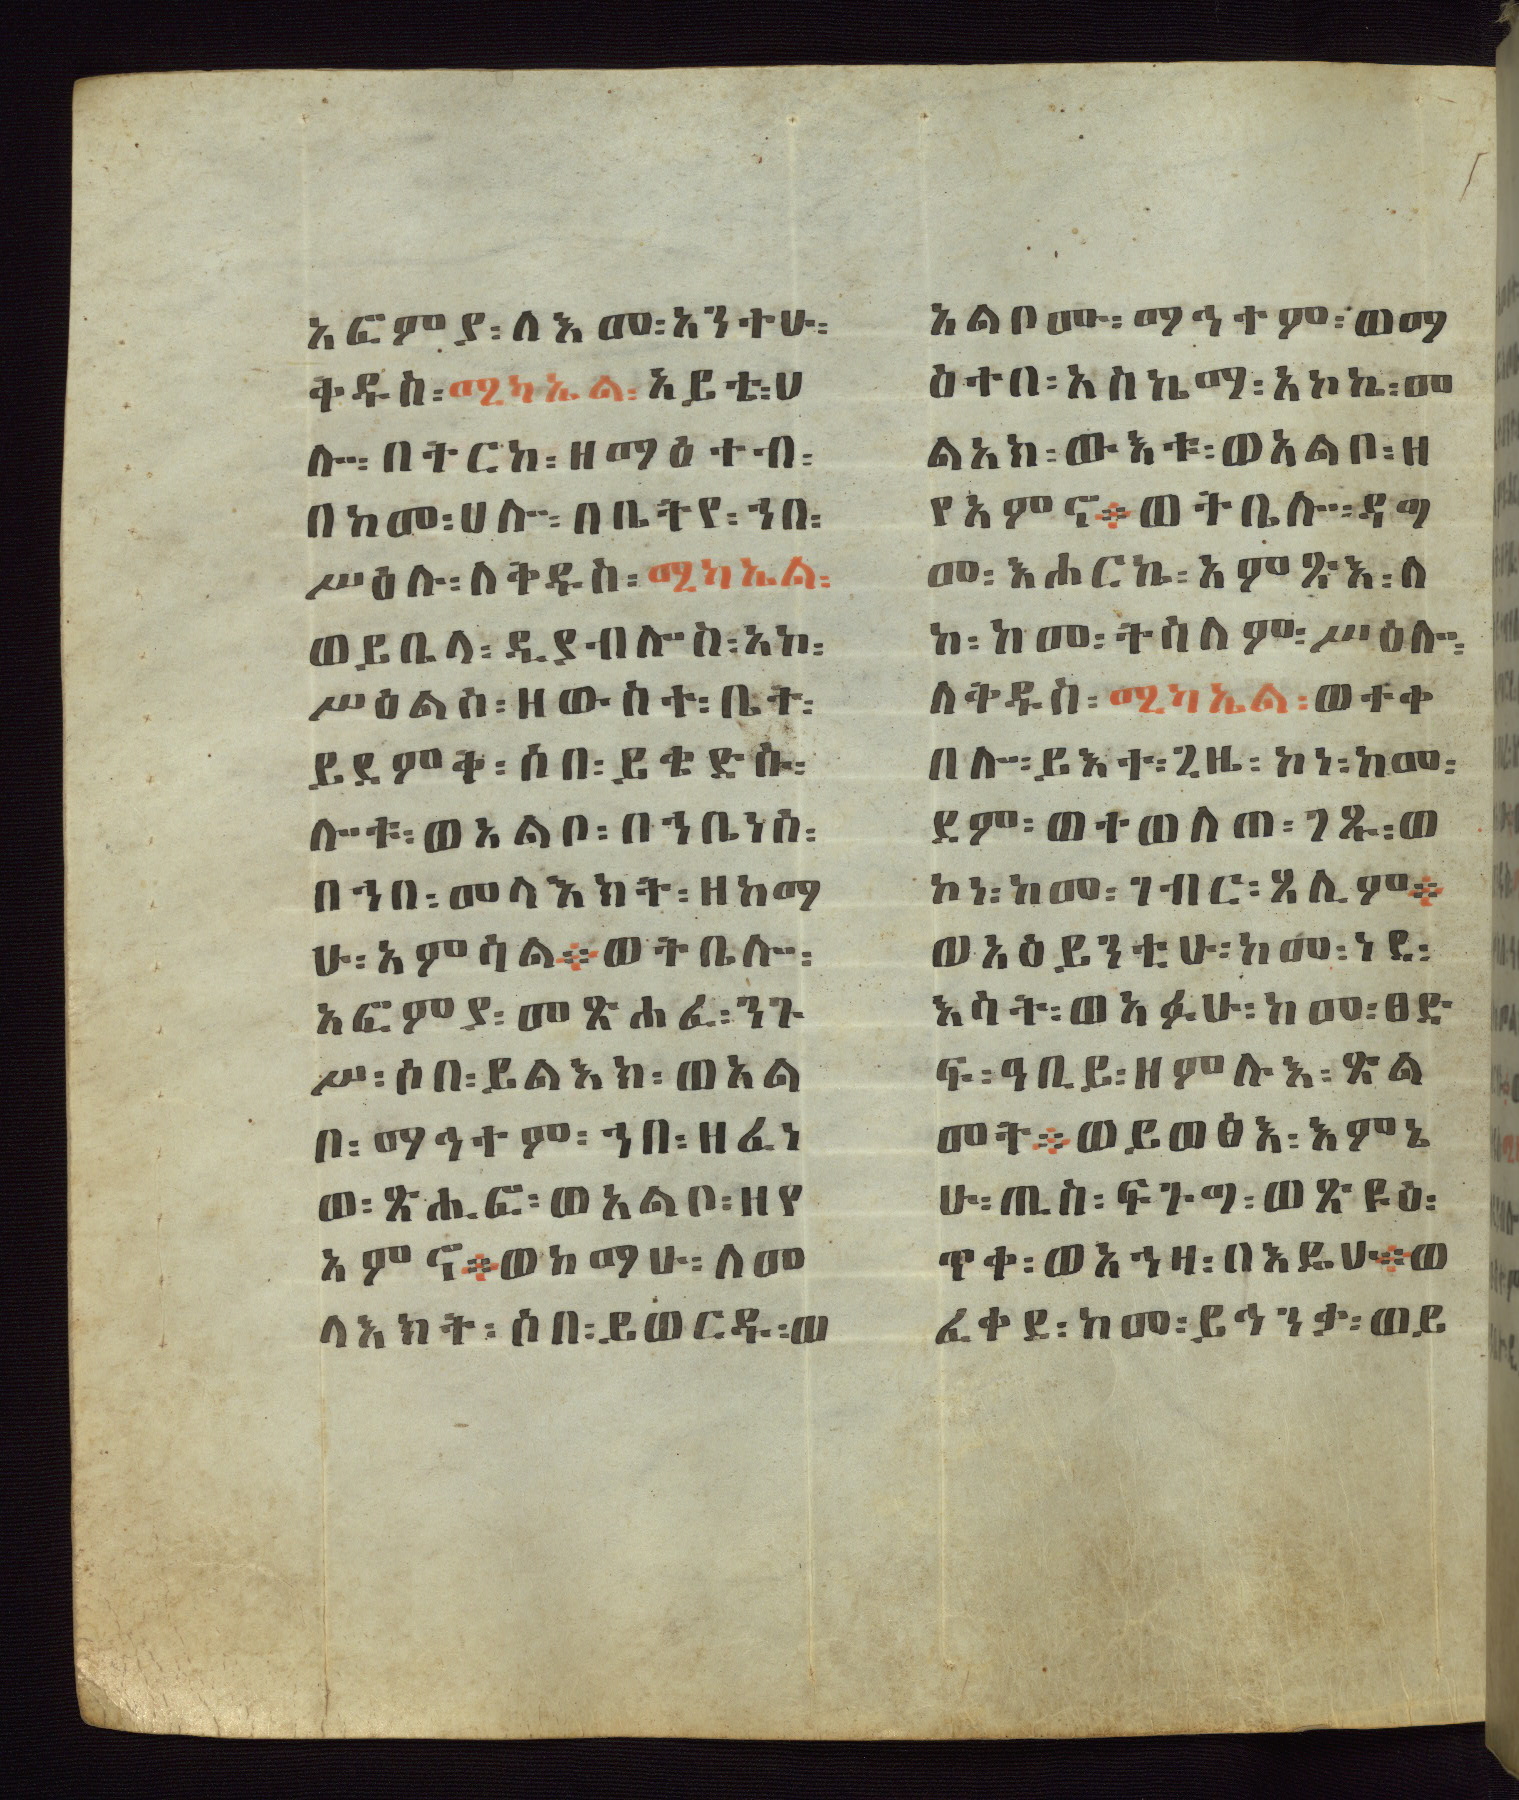 አፎምያ፡ለእመ፡አንተሁ፡
ቅዱስ፡ሚካኤል፡አይቴ፡ሀ
ሎ፡በትርከ፡ዘማዕተብ፡
በከመ፡ሀሎ፡በቤትየ፡ኀበ፡
ሥዕሉ፡ለቅዱስ፡ሚካኤል፡
ወይቤላ፡ዲያብሎስ፡አኮ፡
ሥዕልሰ፡ዘውስተ፡ቤት፡
ይደምቅ፡ሶበ፡ይቄድሱ፡
ሎቱ፡ወአልቦ፡በኀቤነሰ፡
በኀበ፡መላእክት፡ዘከማ
ሁ፡አምሳል፨ወትቤሎ፡
አፎምያ፡መጽሐፈ፡ንጉ
ሥ፡ሶበ፡ይልእክ፡ወአል
በ፡ማኅተም፡ኀበ፡ዘፈነ
ወ፡ጽሒፎ፡ወአልቦ፡ዘየ
አምኖ፨ወከማሁ፡ለመ
ላእክት፡ሶበ፡ይወርዱ፡ወ
አልቦሙ፡ማኅተም፡ወማ
ዕተበ፡አስኬማ፡አኮኬ፡መ
ልአክ፡ውእቱ፡ወአልቦ፡ዘ
የአምኖ፨ወትቤሎ፡ዳግ
መ፡እሐርኬ፡አምጽእ፡ለ
ከ፡ከመ፡ትስለም፡ሥዕሎ፡
ለቅዱስ፡ሚካኤል፡ወተቀ
በሎ፡ይእተ፡ጊዜ፡ኮነ፡ከመ፡
ደም፡ወተወለጠ፡ገጹ፡ወ
ኮነ፡ከመ፡ገብር፡ጸሊም፨
ወአዕይንቲሁ፡ከመ፡ነደ፡
እሳት፡ወአፉሁ፡ከመ፡ፀድ
ፍ፡ዓቢይ፡ዘምሉእ፡ጽል
መት፨ወይወፅእ፡እምኔ
ሁ፡ጢስ፡ፍጉግ፡ወጽዩዕ፡
ጥቀ፡ወአኀዛ፡በእዴሁ፨ወ
ፈቀደ፡ከመ፡ይኅንቃ፡ወይ